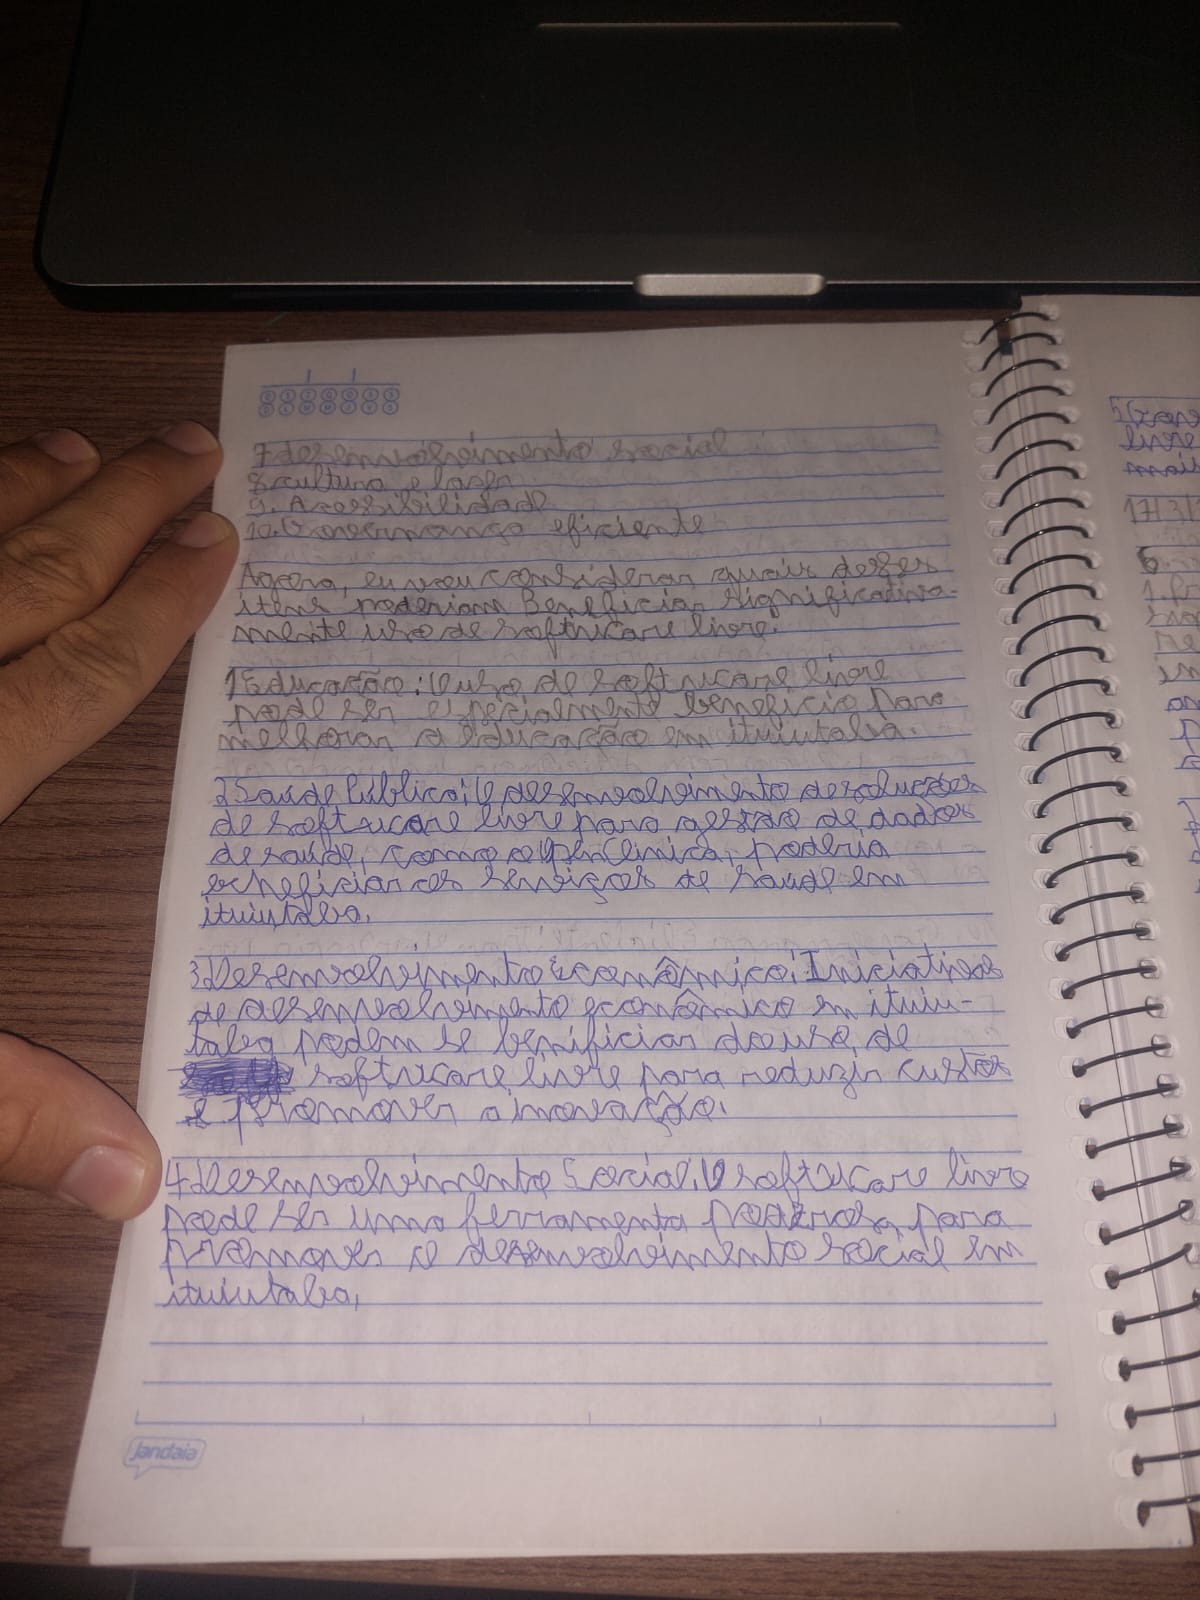 7 desenvolvimento social
8 cultura e laser
9. Acessibilidade
10. Governança eficiente
Agora, eu vou considerar quais desses
itens poderiam Beneficiar significativa-
mente uso de software livre.
1 Educação: O uso de software livre
pode ser especialmente beneficio para
melhorar a educação em ituiutaba.
2 Saúde Pública: O desenvolvimento de soluções
de software livre para gestão de dados
de saúde, como o OpenClinica, poderia
beneficiar os serviços de saúde em
ituiutaba.
3 Desenvolvimento Econômico: Iniciativas
de desenvolvimento econômico em ituiu-
taba podem se benificiar do uso de
software livre para reduzir custos
e promover a inovação.
4 Desenvolvimento Social: O software livre
pode ser uma ferramenta poderosa para
promover o desenvolvimento social em
ituiutaba,
jandaia
livre
mais
17/3/
6